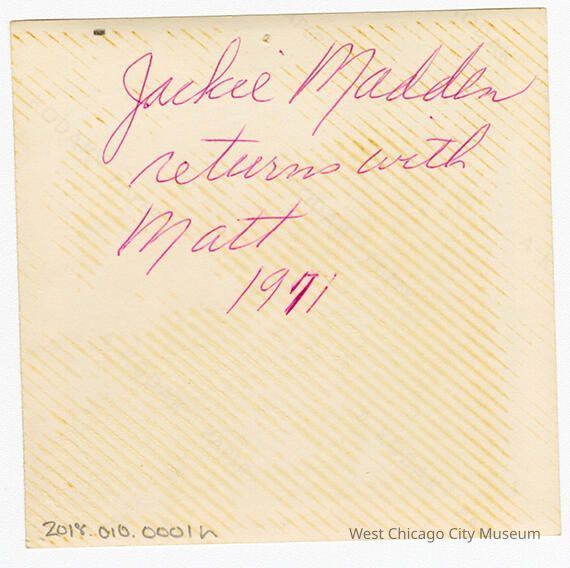 Jackie Madden
returns with
Matt
1971
2018.010.0001h
West Chicago City Museum